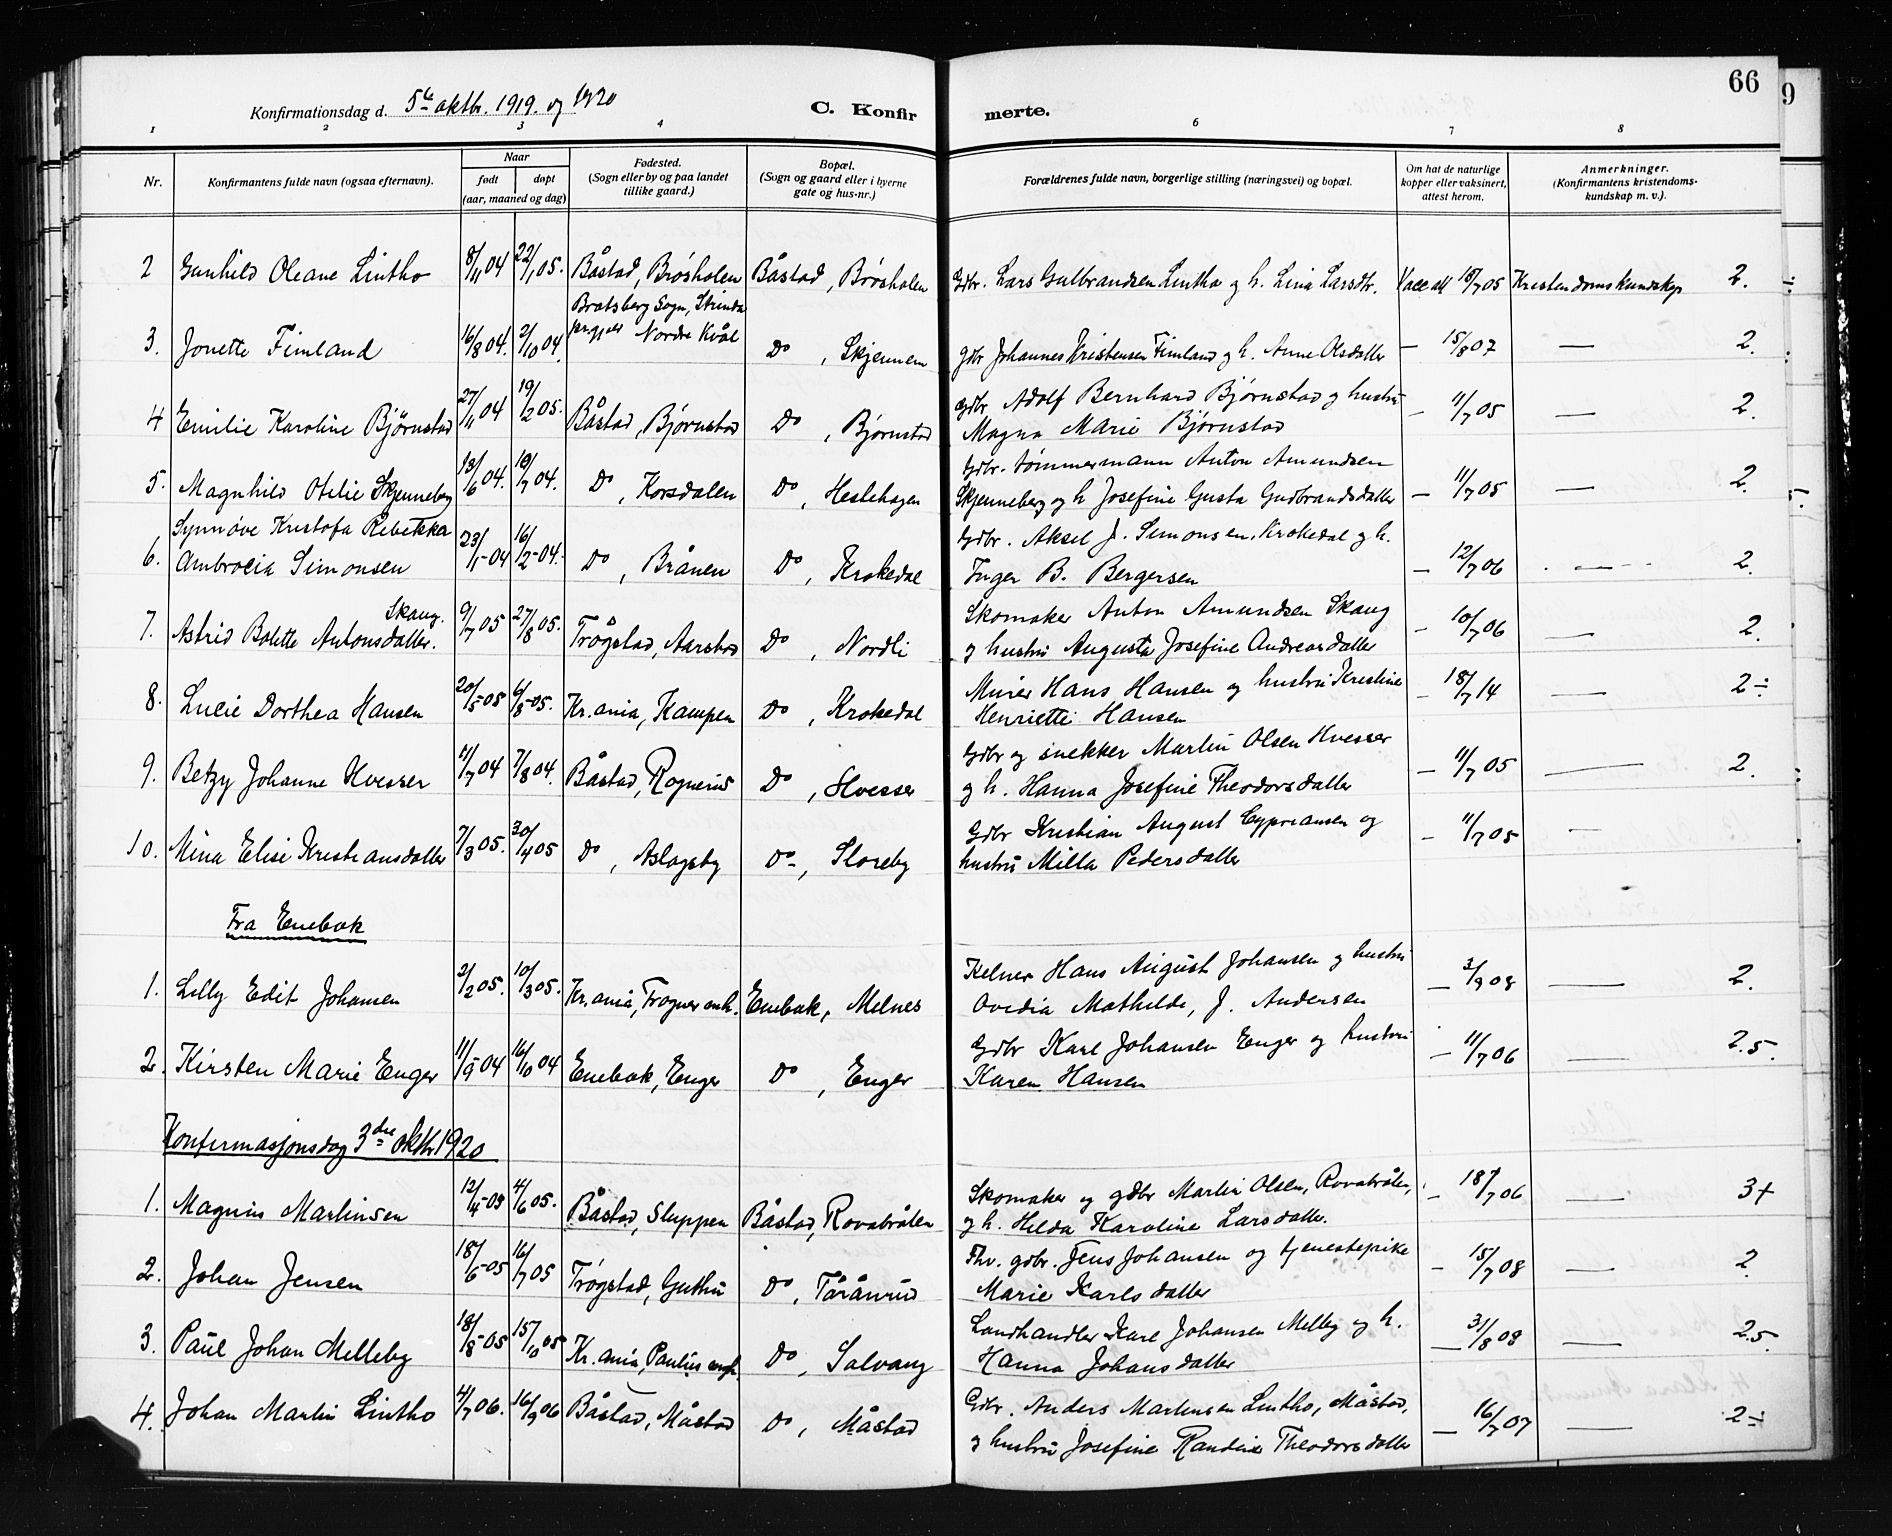 66
9
Konfirmationsdag d. 5te oktbr. 1919. og 1920
C. Konfir merte.
1 2 3 4 6 7 8
Nr.
Konfirmantens fulde navn (ogsaa efternavn).
Naar
født
døpt
(aar, maaned og dag)
Fødested.
(Sogn eller by og paa landet
tillike gaard.)
Bopæl.
(Sogn og gaard eller i byerne
gate og hus-nr.)
Forældrenes fulde navn, borgerlige stilling (næringsvei) og bopæl.
Om hat de naturlige
kopper eller vaksinert,
attest herom.
Anmerkninger.
(Konfirmantens kristendoms-
kundskap m. v.).
2 Gunhild Oleane Lintho 8/11 04 22/1 05. Båstad, Brøsholen Båstad, Brøsholen Gdbr. Lars Gulbrandsen Lintho og h. Lina Larsdtr. Vacc att 18/7 05 Kristendomskundskap 2.
Bratsberg Sogn, Strinda
3. Jonette Fimland 16/8 04. 2/10 04. Nordre Kvål Do, Skjennem Gdbr Johannes Kristensen Fimland og h. Anne Olsdatter — 15/8 07 — 2.
4 Emilie Karoline Bjørnstad 27/11 04 19/2 05. Båstad, Bjørnstad Do, Bjørnstad Gdbr Adolf Bernhard Bjørnstad og hustru
Magna Marie Bjørnstad — 11/7 05 — 2.
5. Magnhild Otilie Skjenneberg 13/6 04. 10/7 04. Do, Korsdalen Do, Heslehagen Gdbr. tømmermann Anton Amundsen
Skjenneberg og h Josefine Gusta Gudbrandsdatter — 11/7 05 — 2.
Synnøve Kristofa Rebekka
6. Ambrocia Simonsen 23/1-04 16/2-04. Do, Brånen Do, Krokedal Gdbr. Aksel J. Simonsen, Krokedal og h.
Inger B. Bergersen — 12/7 06 — 2.
Skaug.
7. Astrid Bolette Antonsdatter. 9/7 05 27/8 05. Trøgstad, Aarstad Do, Nordli Skomaker Anton Amundsen Skaug
og hustru Augusta Josefine Andreasdatter — 10/7 06 — 2.
8. Lucie Dorthea Hansen 20/5-05 6/8-05. Kr.ania, Kampen Do, Krokedal Murer Hans Hansen og hustru Kristine
Henriette Hansen — 18/7 14 — 2÷
9. Betzy Johanne Hvesser 11/7 04 7/8 04. Båstad, Rognerud Do, Hvesser Gdbr og snekker Martin Olsen Hvesser
og h. Hanna Josefine Theodorsdatter — 11/7 05 — 2.
10. Mina Elise Kristiansdatter 7/3 05. 30/4 05 Do, Aslagsby Do-, Storeby Gdbr Kristian August Cypriansen og
hustru Milla Pedersdatter — 11/7 05 —
Fra Enebak
1. Lilly Edit Johansen 2/2 05. 10/3 05. Kr.ania, Frogner menh. Enebak, Melnes Kelner Hans August Johansen og hustru
Ovidia Mathilde, J. Andersen — 3/9 08 — 2.
2. Kirsten Marie Enger 11/9 04 16/10 04 Enebak, Enger Do, Enger Gdbr Karl Johansen Enger og hustru
Karen Hansen — 11/7 06 — 2.5.
Konfirmasjonsdag 3die oktbr 1920
1. Magnus Martinsen 12/4-05 4/6 05. Båstad, Sluppen Båstad, Rovabråten Skomaker og gdbr Martin Olsen, Rovabråten,
og h. Hilda Karoline Larsdatter. — 18/7 06 — 3+
2. Johan Jensen 18/6-05 16/7 05 Trøgstad, Guthu Do, Tåråvrud Fhv. gdbr. Jens Johansen og tjenestepike
Marie Karlsdatter — 15/7 08 — 2
3. Paul Johan Melleby 18/8-05 15/10 05 Kr.ania, Paulus mgh. Do, Solvang Landhandler Karl Johansen Melleby og h.
Hanna Johansdatter — 31/8 08 — 2.5.
4. Johan Martin Lintho 4/7 06. 16/9 06 Båstad, Måstad Do, Måstad Gdbr. Anders Martinsen Lintho, Måstad,
og hustru Josefine Randine Theodorsdatter — 16/7 07 — 2÷